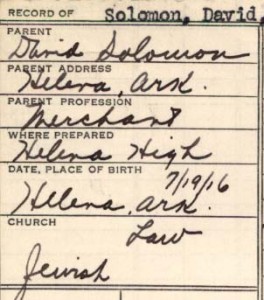 RECORD OF Solomon, David,
PARENT
David Solomon
PARENT ADDRESS
Helena, Ark.
PARENT PROFESSION
Merchant
WHERE PREPARED
Helena High
DATE, PLACE OF BIRTH 7/19/16
Helena, Ark.
CHURCH Law
Jewish